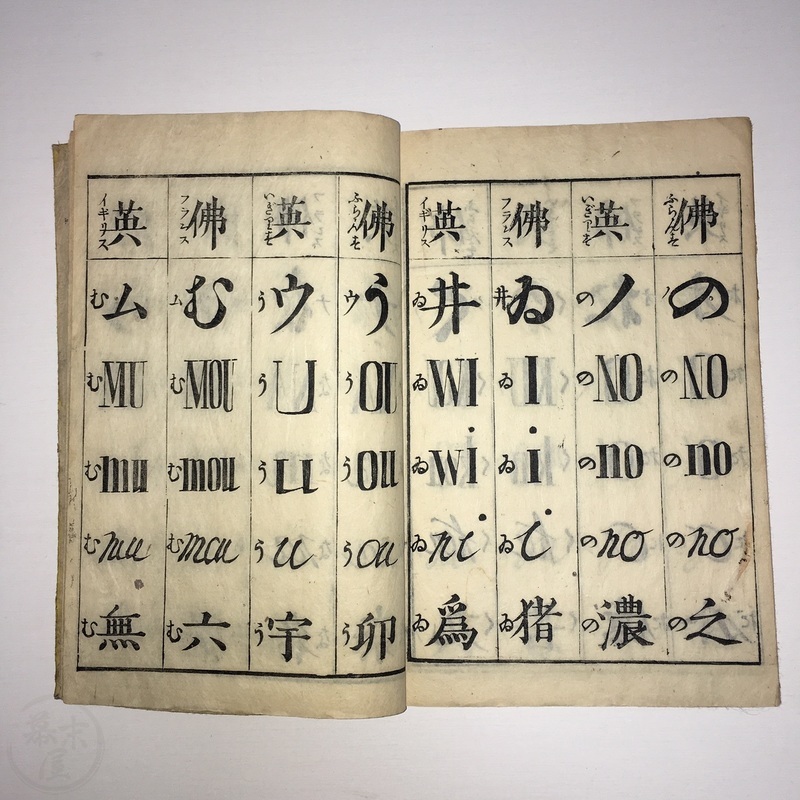 佛 ふらんす の ノ NO の no の no の 之 の
英 いぎりす ノ の NO の no の no の 濃 の
佛 フランス ゐ 井 I ゐ i ゐ i ゐ 猪 ゐ
英 イギリス 井 ゐ WI ゐ wi ゐ ni ゐ 爲 ゐ
佛 ふらんす う ウ OU う ou う ou う 卯 う
英 いぎりす ウ う U う u う u う 宇 う
佛 フランス む ム MOU む mou む mou む 六 む
英 イギリス ム む MU む mu む mu む 無 む
幕末屋